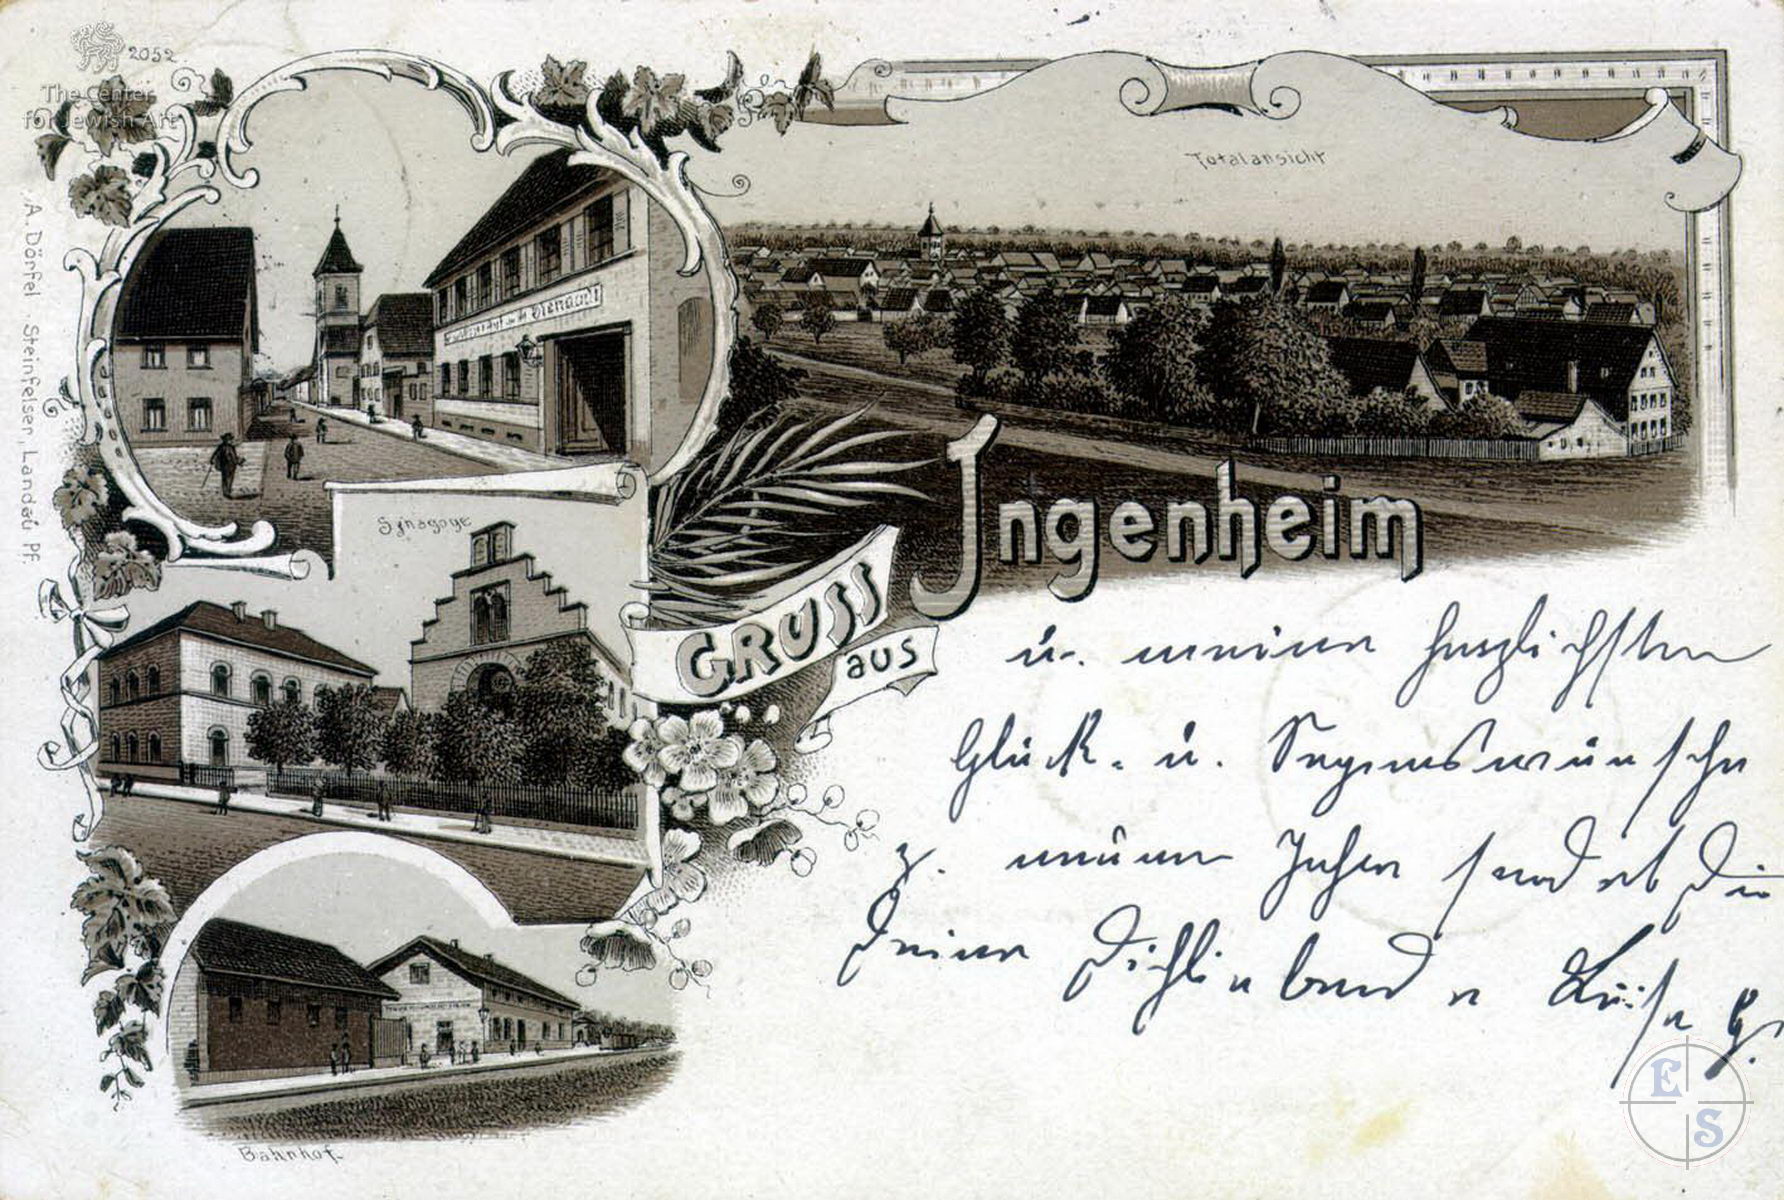 2052
The Center
for Jewish Art
A. Dörfel. Steinfelser, Landau, Pf.
Totalansicht
Synagoge
GRUSS
aus
Ingenheim
Bahnhof.
u. meine herzlichsten
Glück- u. Segenswünsche
z. neuen Jahre sendet Dir
Deine Dichliebende Luise G.
E
S